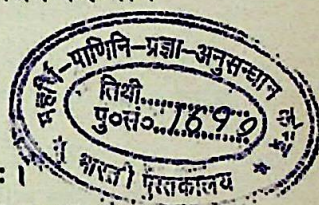 महर्षि-पाणिनि-प्रज्ञा-अनुसन्धान केन्द्र
तिथी..............
पु०सं०.1690
भारती पुस्तकालय
: ।